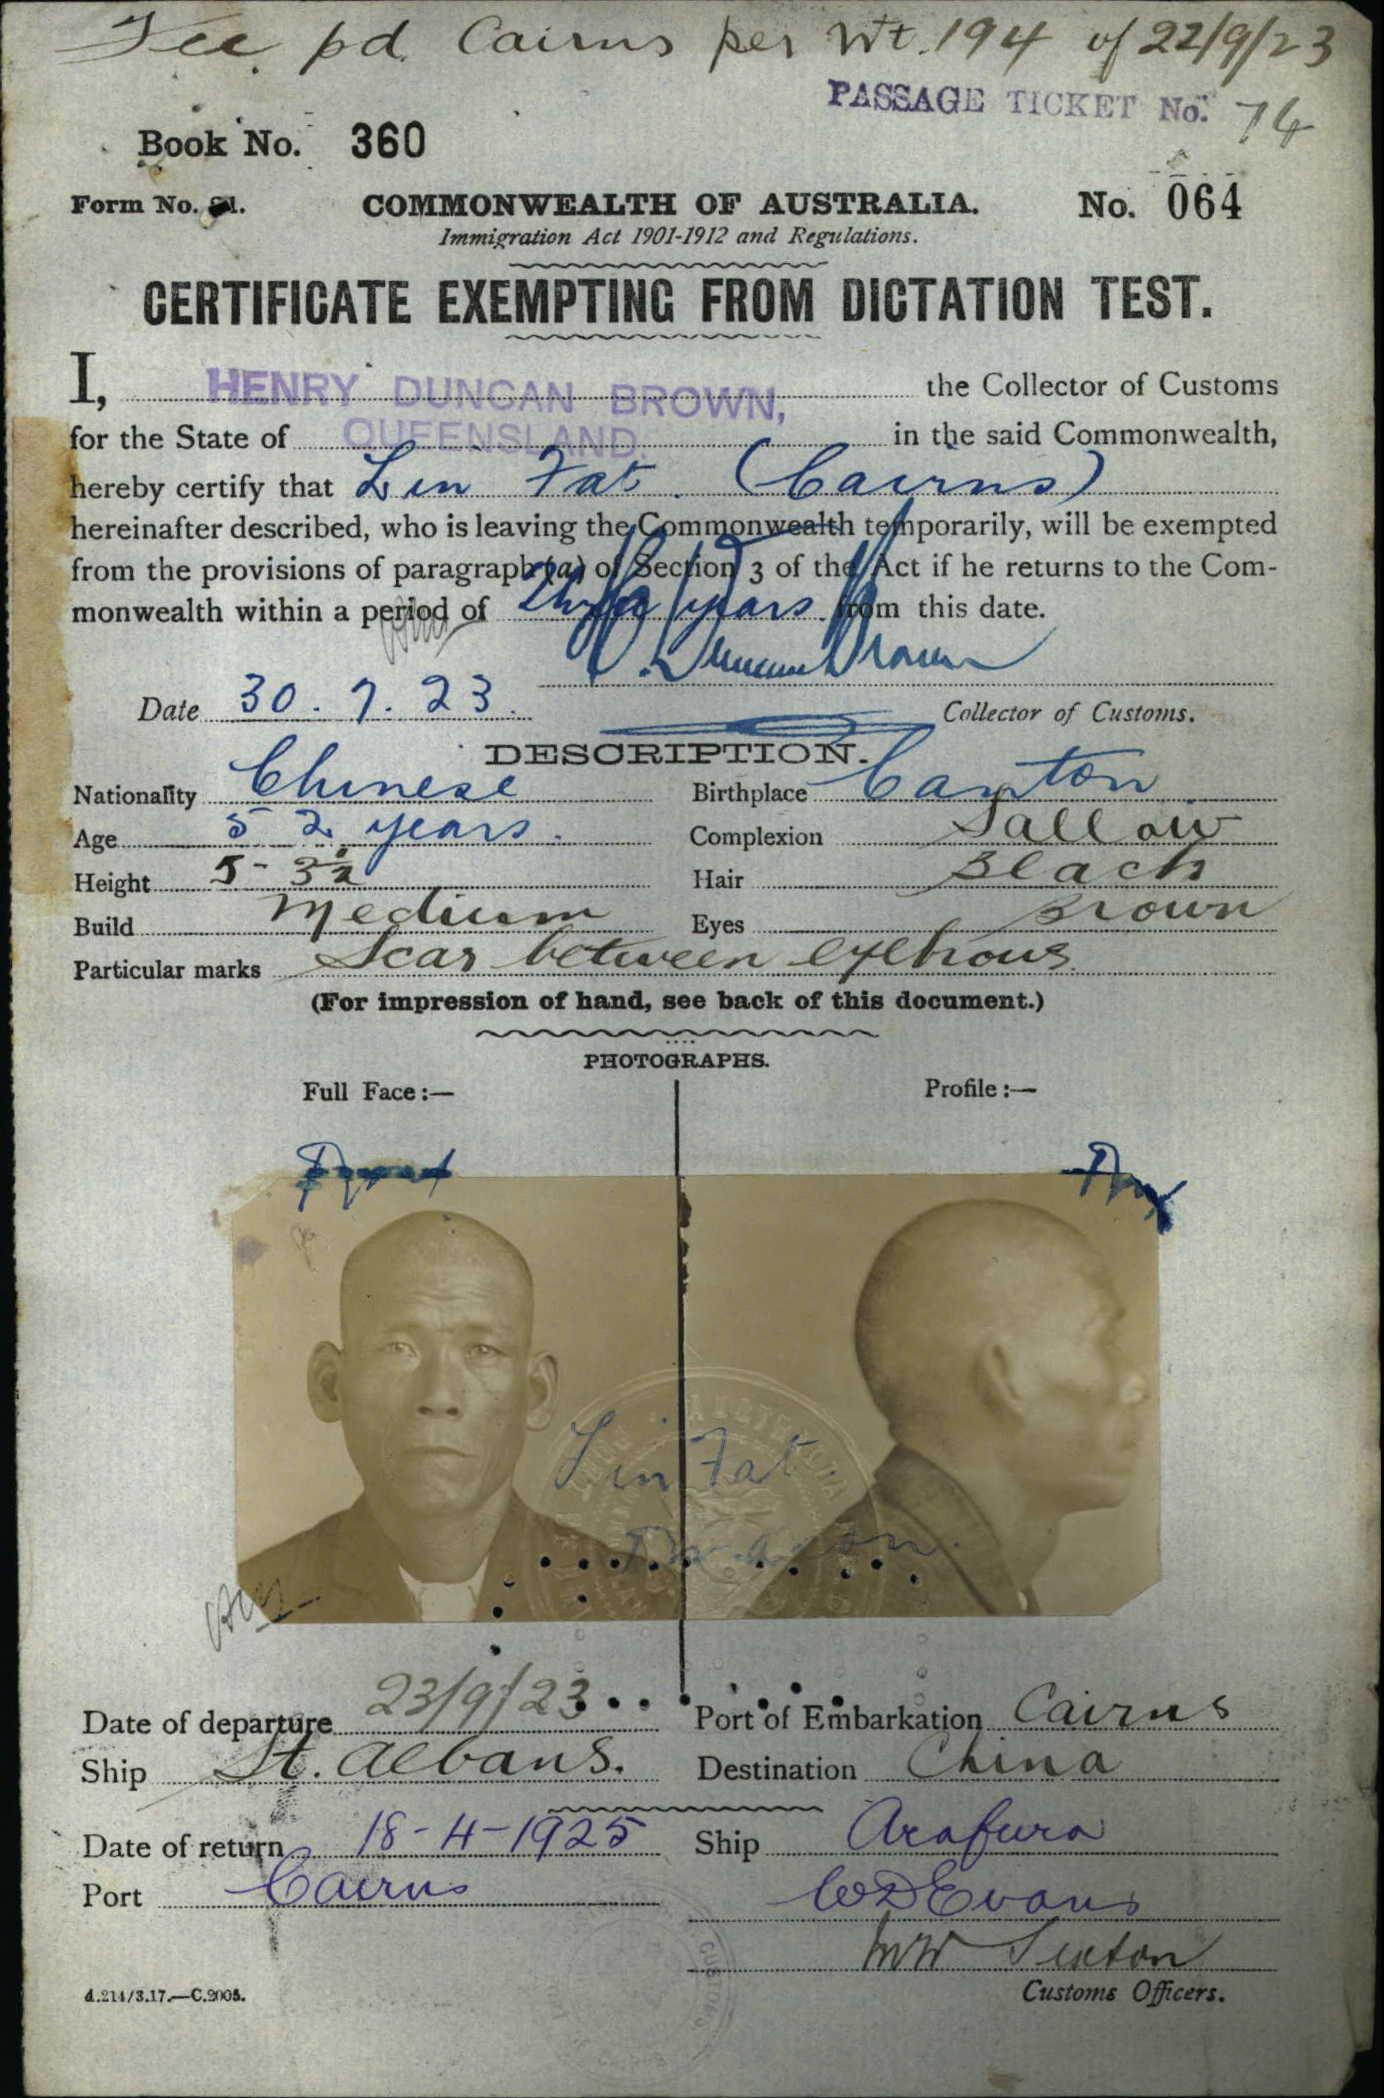 Fee pd. Cairns per Wt. 194 of 22/9/23
PASSAGE TICKET No. 74
Book No. 360
Form No. 21. COMMONWEALTH OF AUSTRALIA. No. 064
Immigration Act 1901-1912 and Regulations.
CERTIFICATE EXEMPTING FROM DICTATION TEST.
I, HENRY DUNCAN BROWN, the Collector of Customs
for the State of QUEENSLAND. in the said Commonwealth,
hereby certify that Lin Fat. (Cairns)
hereinafter described, who is leaving the Commonwealth temporarily, will be exempted
from the provisions of paragraph (a) of Section 3 of the Act if he returns to the Com-
monwealth within a period of Three years from this date.
H. Duncan Brown
Date 30. 7. 23. Collector of Customs.
DESCRIPTION.
Nationality Chinese Birthplace Canton
Age 52 years. Complexion Sallow
Height 5-3½ Hair Black
Build Medium Eyes Brown
Particular marks Scar between eyebrows
(For impression of hand, see back of this document.)
PHOTOGRAPHS.
Full Face:— Profile:—
Lin Fat.
Date of departure 23/9/23 Port of Embarkation Cairns
Ship St. Albans. Destination China
Date of return 18-4-1925 Ship Arafura
Port Cairns WD Evans
Sexton
A.214/3.17.—C.2005. Customs Officers.